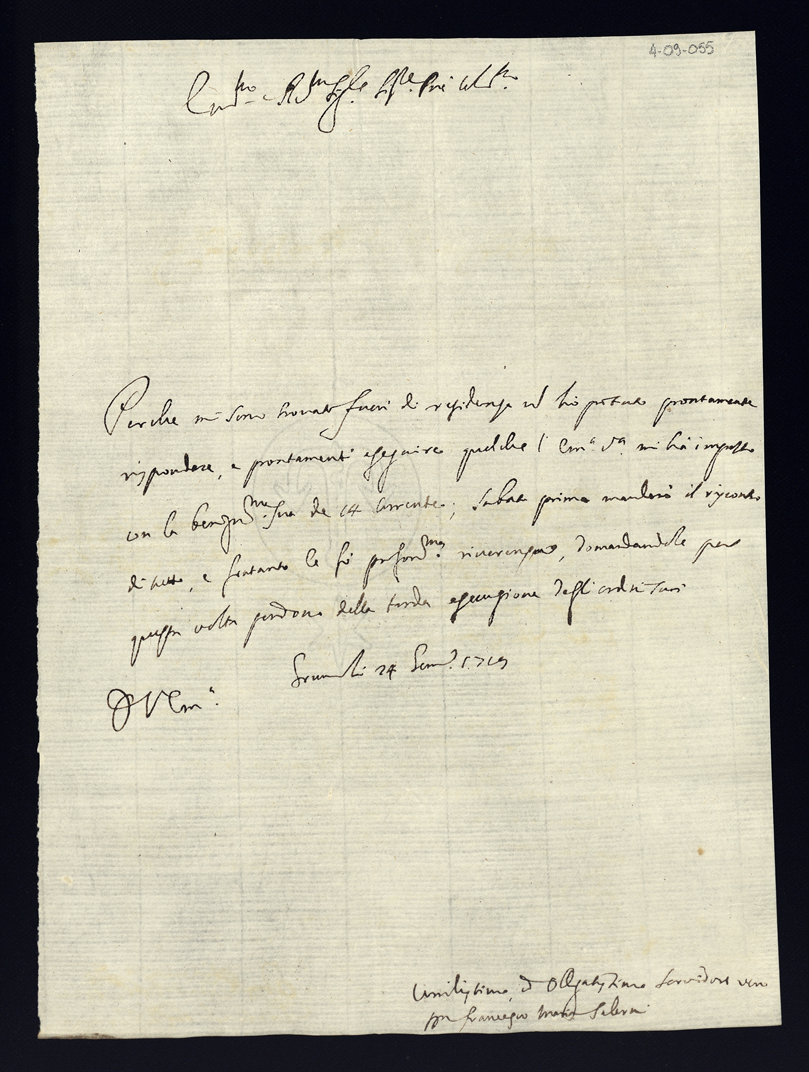 4-09-055
Em.mo e R.mo Sig.re Sig.re P.ne Col.mo
Perche mi sono trovato fuori di residenza nō hò potuto prontamente
rispondere, e prontamente eseguire quelche l' Em.a V.a mi hà imposto
con la benign.ma sua de 14 corrente; Sabato primo manderò il risconto
di tutto, e fratanto le fò profond.ma riverenza, domandandole per
questa volta perdono della tarda esecuzione degli ordini suoi
24 Genn.o 1719
D V Em.a
Umilissimo, ed Obligatissimo Servidore vero
Francesco Maria